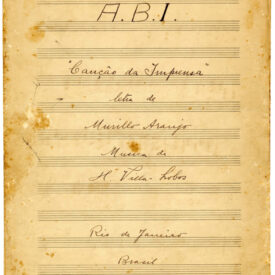 A.B.I.
"Canção da Imprensa"
letra de
Murillo Araujo
Musica de
H. Villa-Lobos
Rio de Janeiro
Brasil